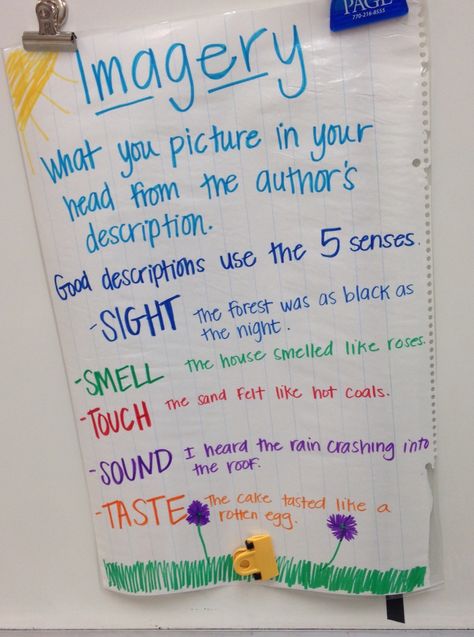 PAGE
770-216-8555
Imagery
What you picture in your
head from the author's
description.
Good descriptions use the 5 senses.
-SIGHT The forest was as black as
the night.
-SMELL The house smelled like roses.
-TOUCH The sand felt like hot coals.
-SOUND I heard the rain crashing into
the roof.
-TASTE The cake tasted like a
rotten egg.